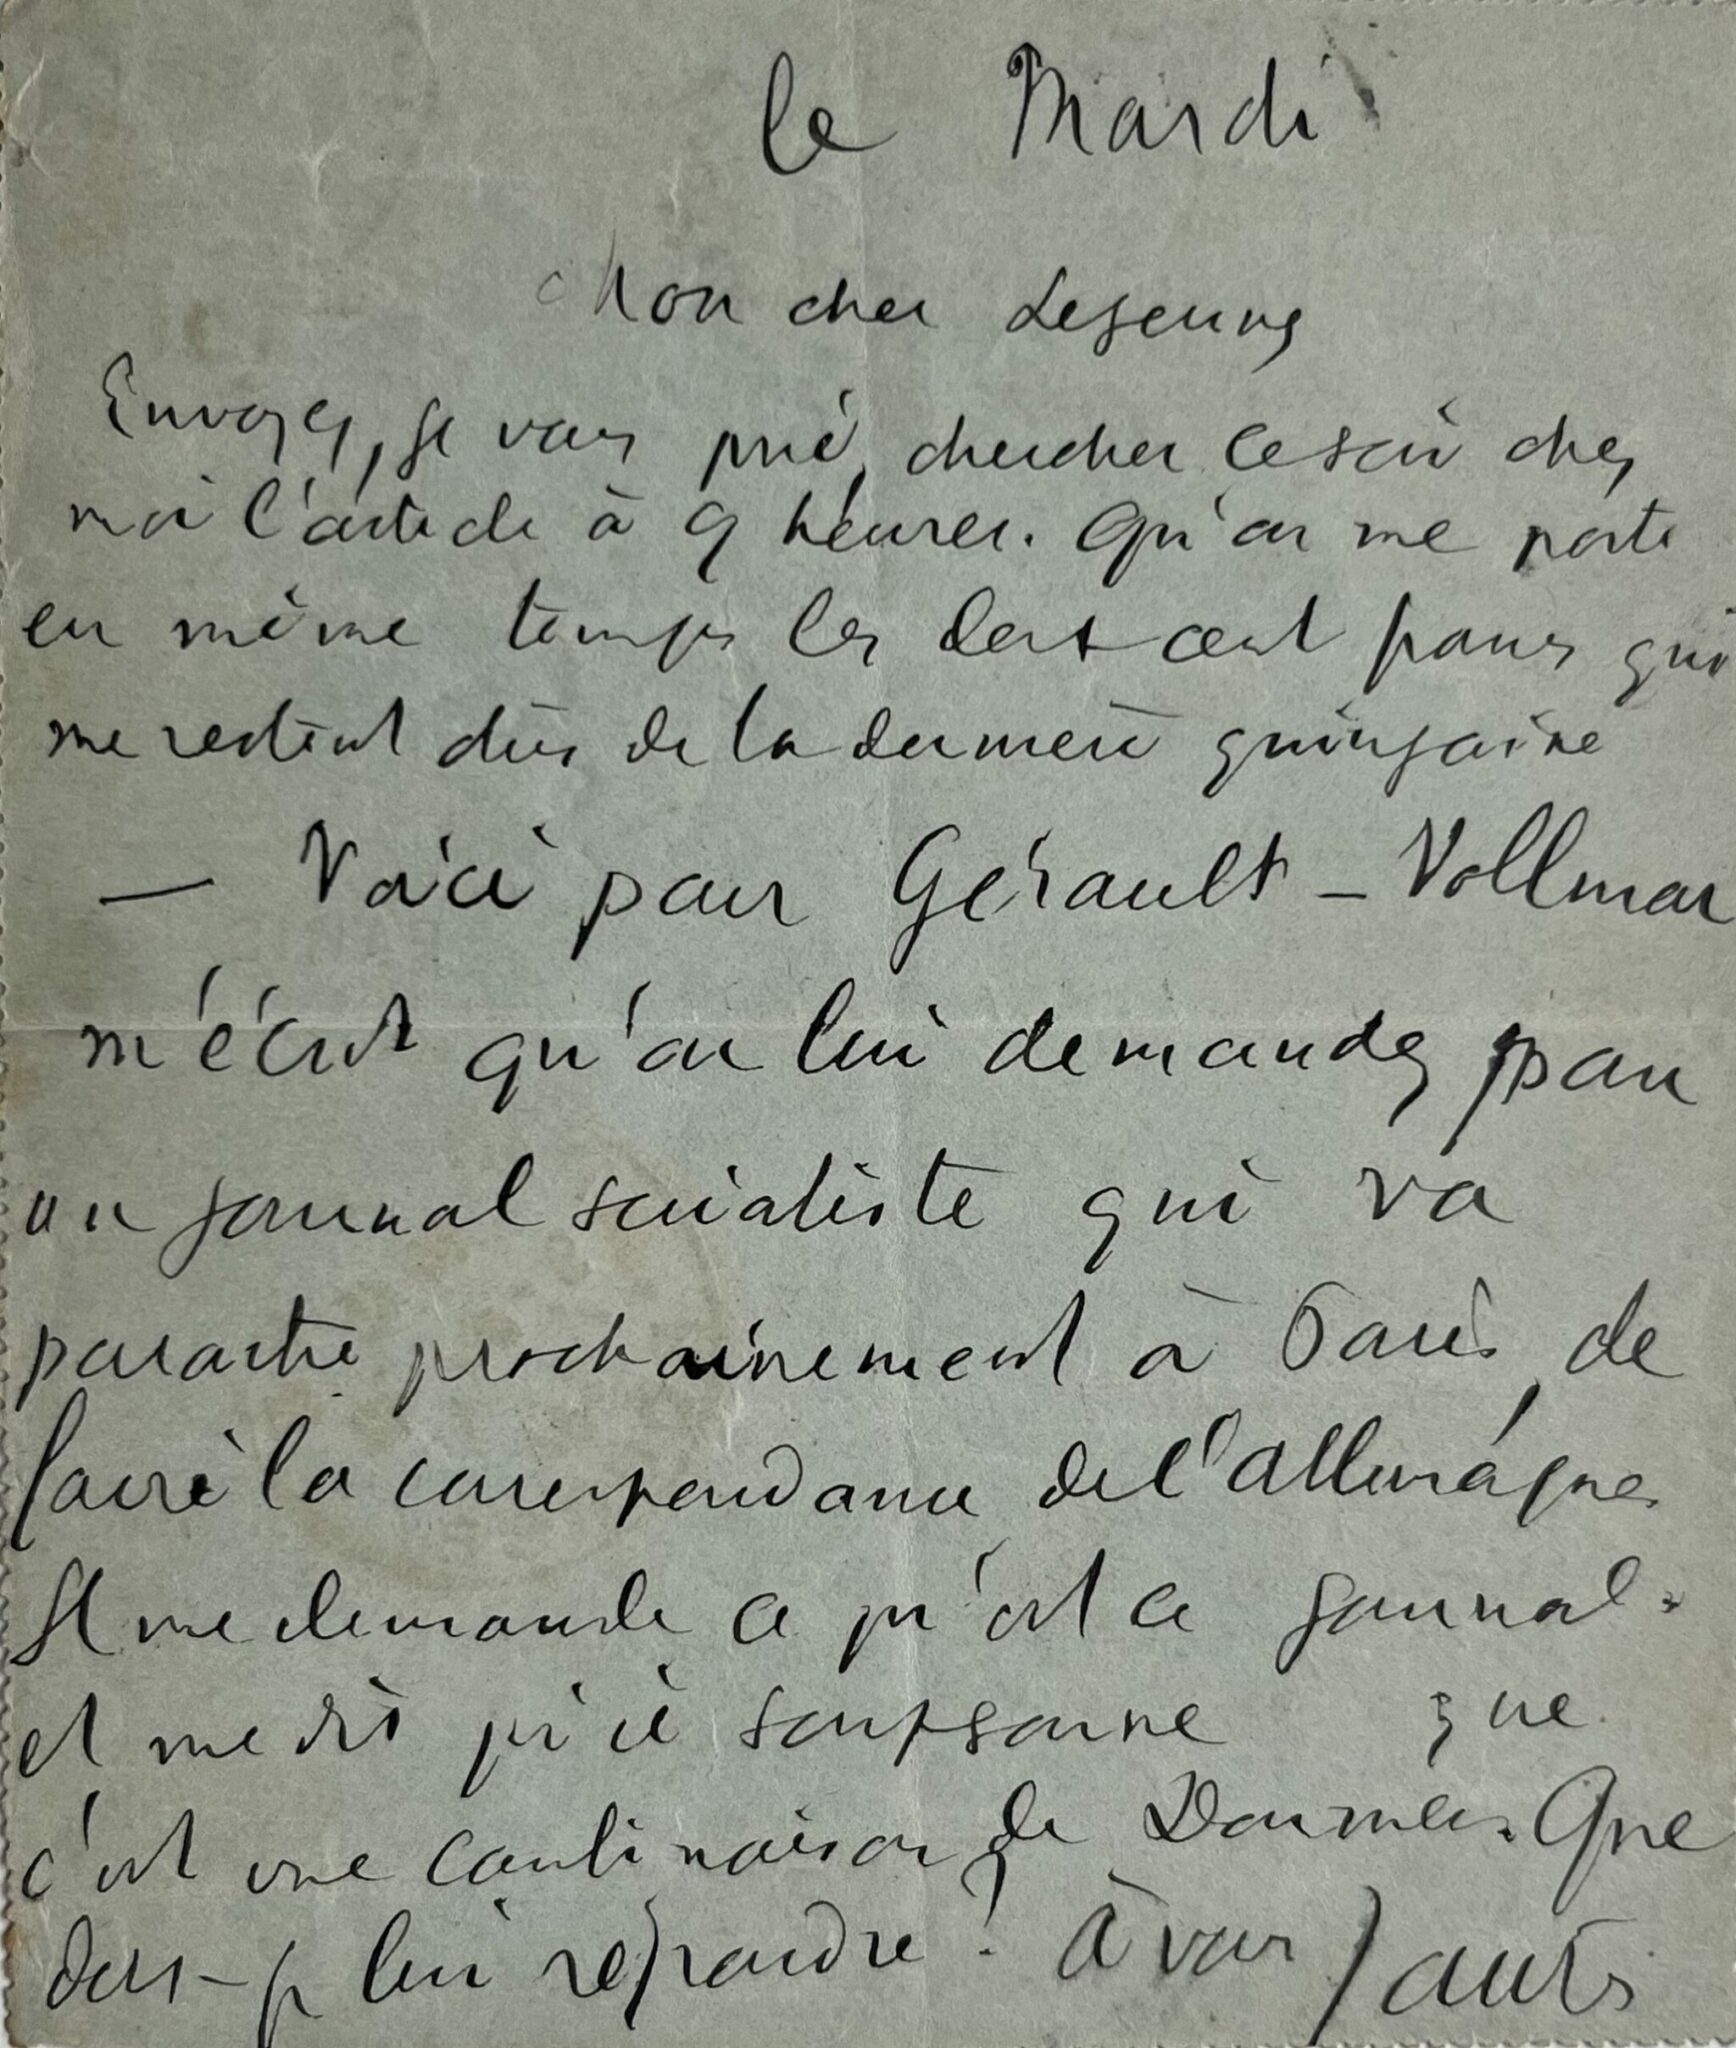 le Mardi
Mon cher Lejeune
Envoyez, je vous prie, chercher ce soir chez
moi l'article à 9 heures. Qu'on me porte
en même temps les deux cent francs qui
me restent dûs de la dernière quinzaine
— Voici pour Gérault – Vollmar
m'écrit qu'on lui demande, pour
un journal socialiste qui va
paraître prochainement à Paris, de
faire la correspondance de l'Allemagne.
Il me demande ce qu'est ce journal.
et me dit qu'il soupçonne que
c'est une combinaison de Doumer. Que
dois-je lui répondre? À vous Jaurès